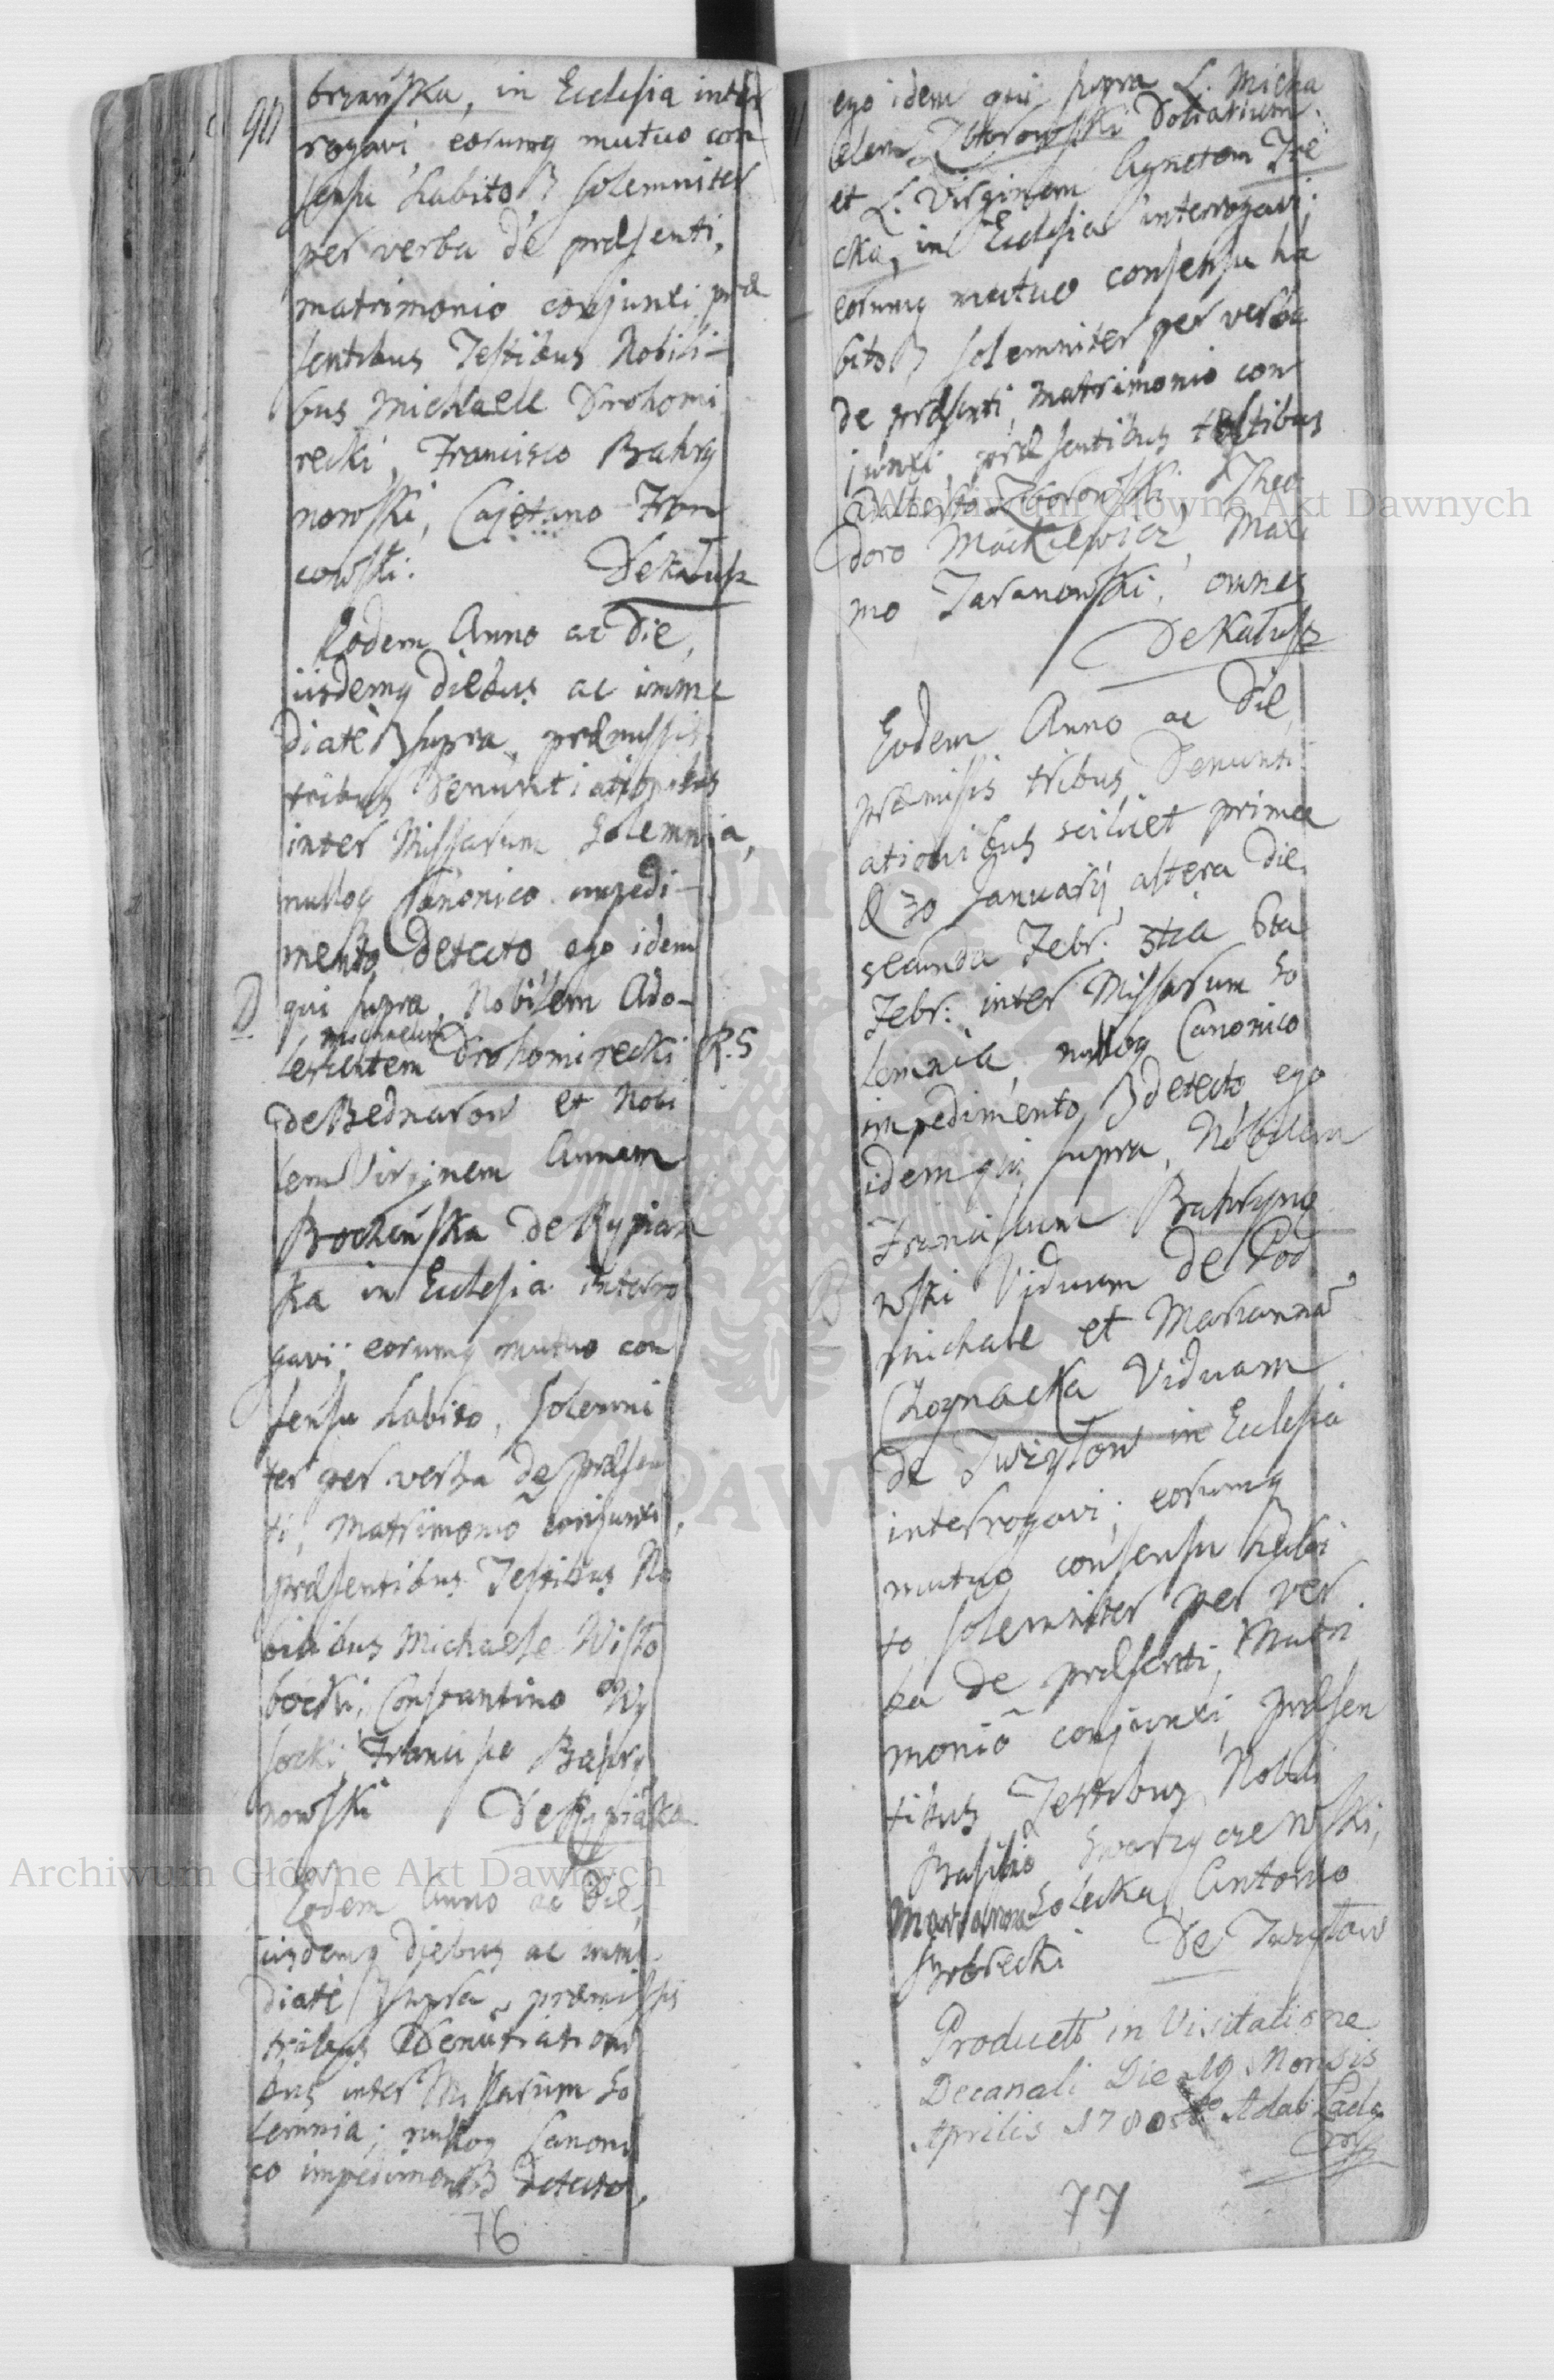 90
brzańska, in Ecclesia inter
rogavi, eorumq mutuo con
sensu habito, solemniter
per verba de præsenti,
matrimonio conjunxi, præ
sentibus Testibus Nobili-
bus Michaele Drohomi
recki, Francisco Bahry
nowski, Cajetano Fran
cowski. De Kałusz
Eodem Anno ac Die,
iisdemq Diebus ac imme
diatè supra, præmissis
tribus Denuntiationibus
inter Missarum Solemnia,
nulloq Canonico impedi-
mento Detecto ego idem
qui supra, Nobilem Ado-
Michaelem
lescentem Drohomirecki R. S
de Bednarow et Nobi
lem Virginem Annam
Bocheńska de Rypian
ka in Ecclesia interro
gavi; eorumq mutuo con
sensu habito, solemni
ter per verba de præsen
ti, Matrimoniõ conjunxi,
præsentibus Testibus No
bilibus Michaele Wisło
bocki, Constantino Wy
socki, Francisco Bahry
nowski De Rypiãka
Eodem Anno ac Die,
iisdemq Diebus ac imme
diatè supra, præmissis
tribus Denũtiationi
bus inter Missarum So
lemnia; nulloq Canoni
co impedimento Detecto,
76
ego idem qui supra L. Micha
elem Zborowski Doliarium
et L. Virginem Agnetem Ire
cka, in Ecclesia interrogavi;
eorumq mutuo consensu ha
bito, solemniter per verba
de præsenti, matrimonio con
junxi, præsentibus testibus
Adalberto Zborowski, Theo
doro Mackiewicz, Maxi
mo Taranowski, omnes
De Kałusz
Eodem Anno ac Die,
præmissis tribus Denunti
ationibus scilicet prima
30 Januarij, altera die
secunda Febr. 3tia 6ta
Febr: inter Missarum So
lemnia, nulloq Canonico
impedimento detecto, ego
idem qui supra, Nobilem
Franciscum Bahryno
wski Viduum de Pod
michale et Mariannã
Viduam
in Ecclesia
interrogavi; eorumq
mutuo consensu habi
to solemniter per ver
ba de præsenti, Matri
moniõ conjunxi, præsen
tibus Testibus Nobili
Basilio Swaryczewski,
Marianna Solecka, Antonio
De
Product in Visitatione
Decanali Die 19 Mensis
Aprilis
77
Archiwum Główne Akt Dawnych
Archiwum Główne Akt Dawnych